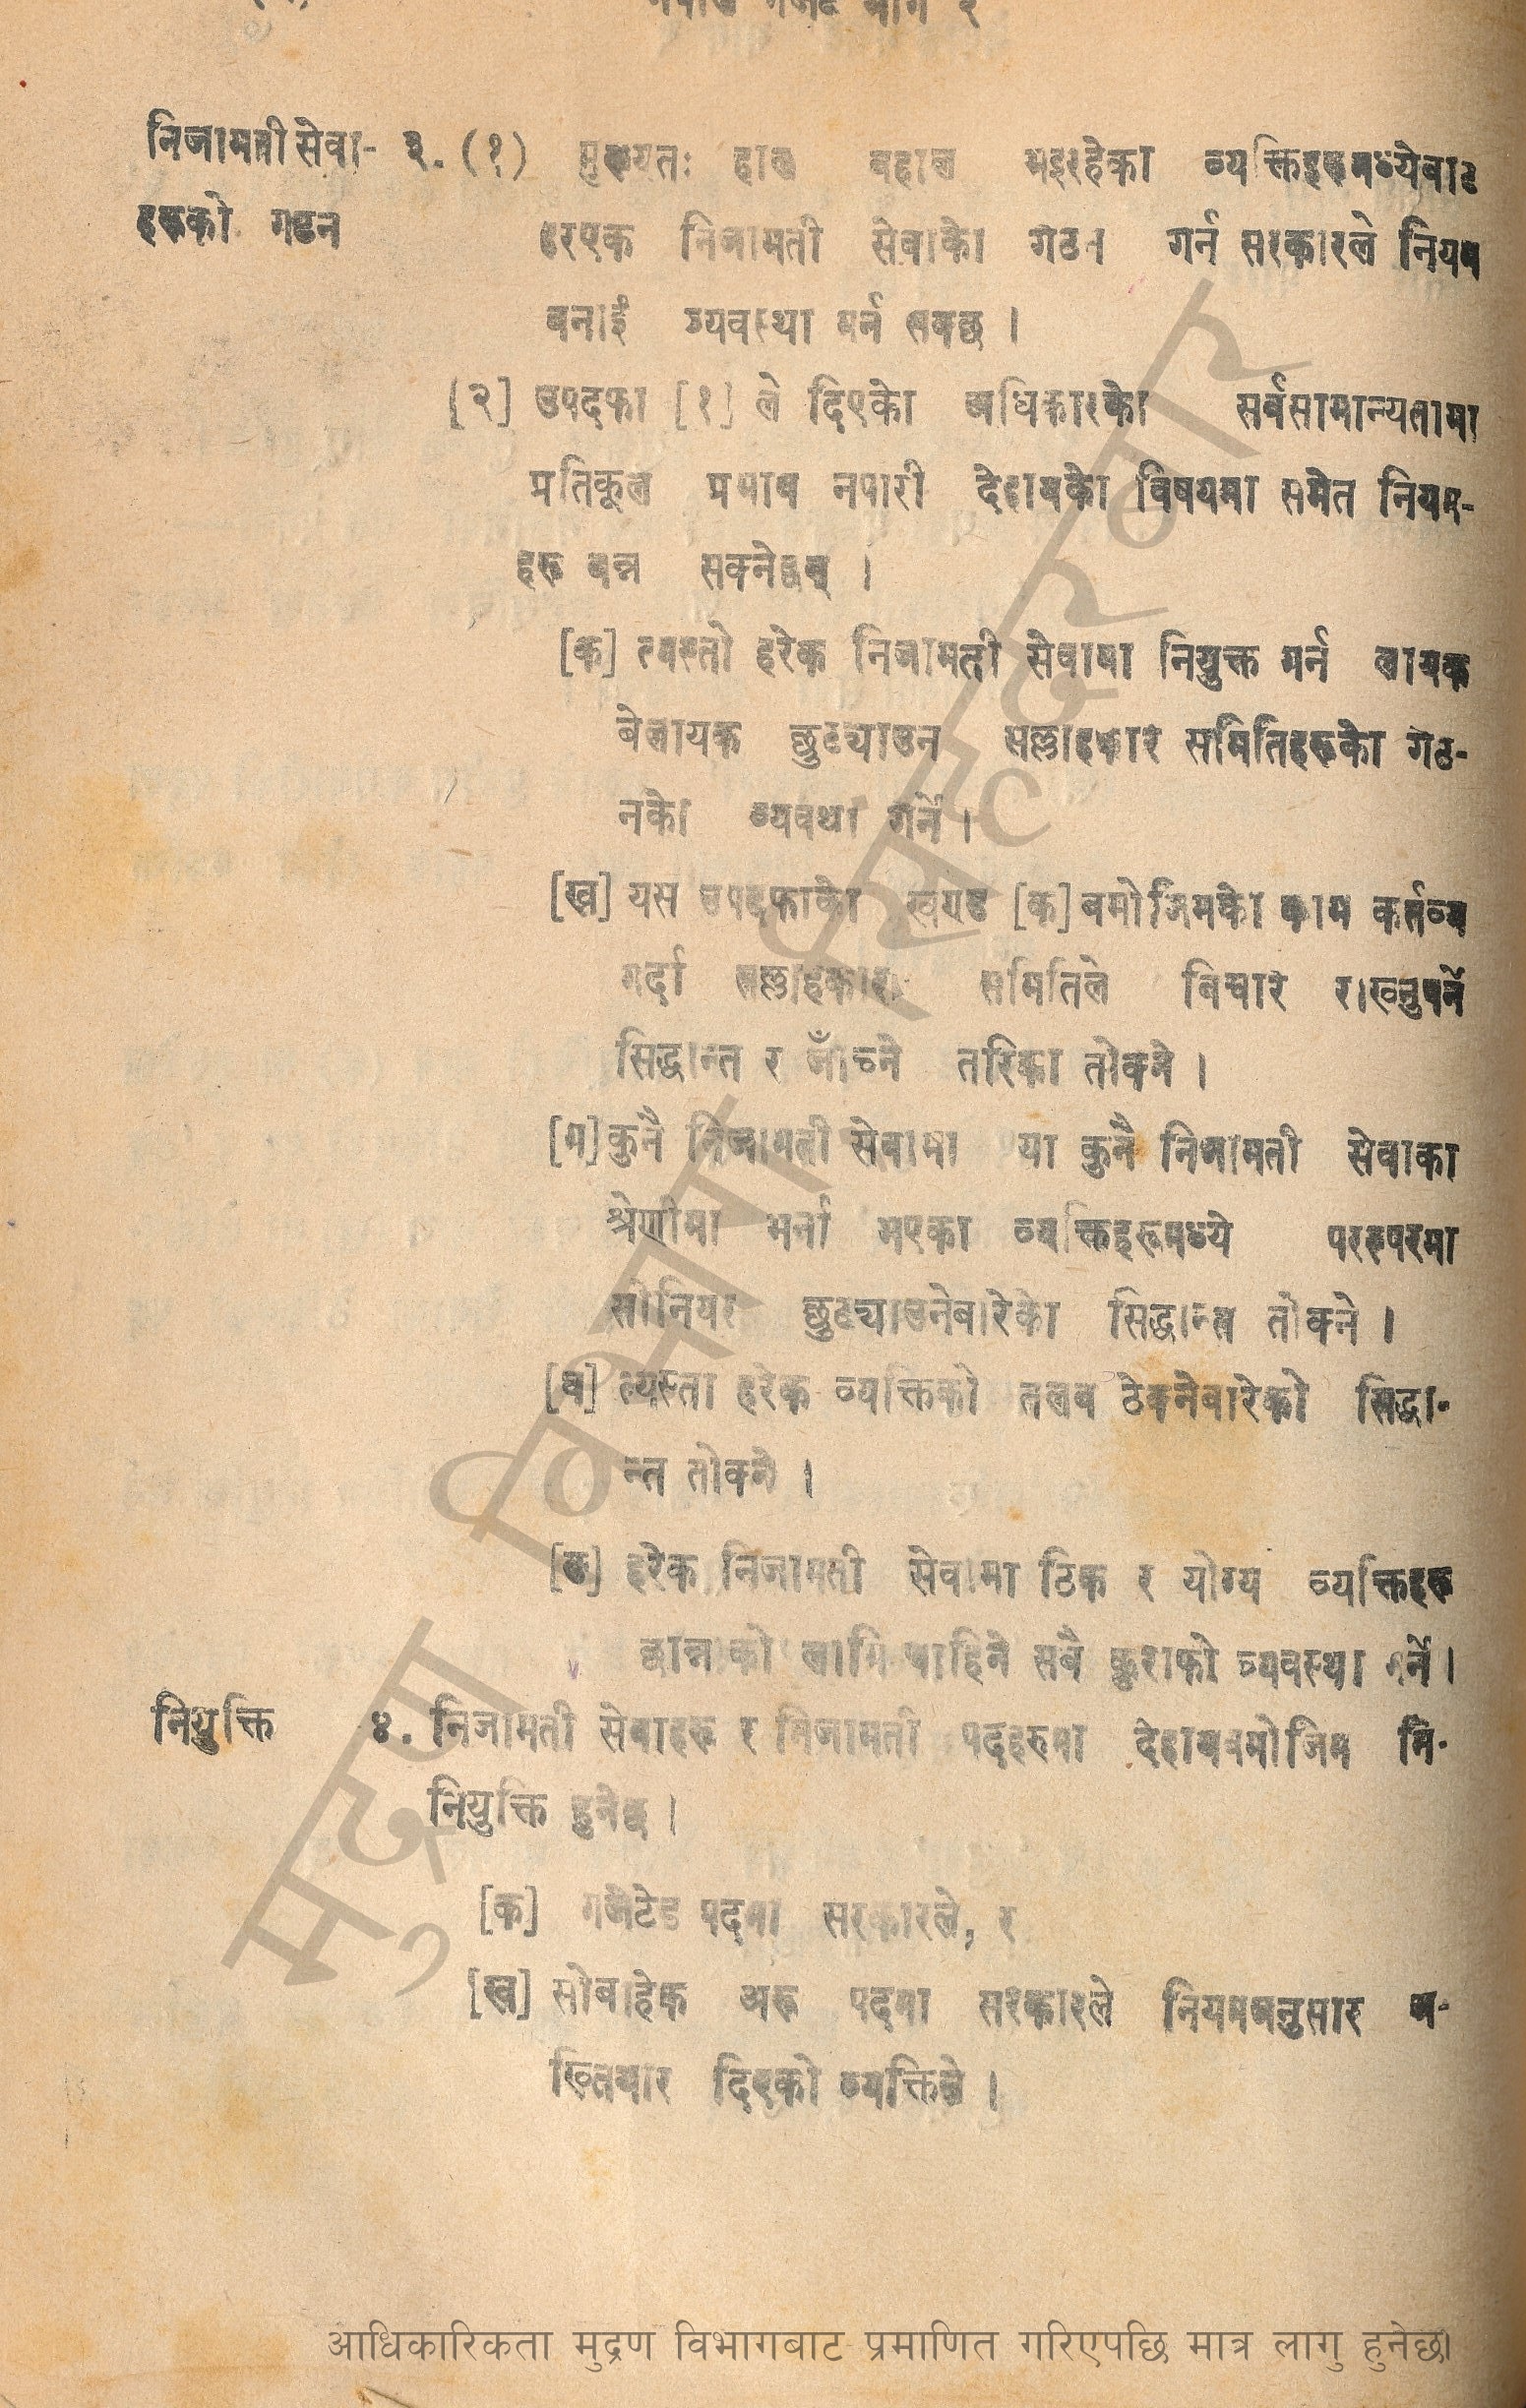 नेपाल गजेट भाग २
निजामती सेवा- ३. (१) मुख्यतः हाल बहाल भइरहेका व्यक्तिहरूमध्येबाट
हरूको गठन हरएक निजामती सेवाको गठन गर्न सरकारले नियम
बनाई व्यवस्था गर्न सक्छ ।
[२] उपदफा [१] ले दिएको अधिकारको सर्वसामान्यतामा
प्रतिकूल प्रभाव नपारी देहायको विषयमा समेत नियम-
हरू बन्न सक्नेछन् ।
[क] त्यस्तो हरेक निजामती सेवामा नियुक्त गर्न लायक
बेलायक छुट्याउन सल्लाहकार समितिहरूको गठ-
नको व्यवथा गर्ने ।
[ख] यस उपदफाको खण्ड [क] बमोजिमको काम कर्तव्य
गर्दा सल्लाहकार समितिले बिचार राख्नुपर्ने
सिद्धान्त र जाँच्ने तरिका तोक्ने ।
[ग] कुनै निजामती सेवामा या कुनै निजामती सेवाका
श्रेणीमा भर्ना भएका व्यक्तिहरूमध्ये परस्परमा
सीनियर छुट्याउनेबारेको सिद्धान्त तोक्ने ।
[घ] त्यस्ता हरेक व्यक्तिको तलब ठेक्नेबारेको सिद्धा-
न्त तोक्ने ।
[ङ] हरेक निजामती सेवामा ठिक र योग्य व्यक्तिहरू
छान्नाको लागि चाहिने सबै कुराको व्यवस्था गर्ने ।
नियुक्ति ४. निजामती सेवाहरू र निजामती पदहरुमा देहायबमोजिम नि-
नियुक्ति हुनेछ ।
[क] गजेटेड पदमा सरकारले, र
[ख] सोबाहेक अरू पदमा सरकारले नियमअनुसार अ-
ख्तियार दिएको व्यक्तिले ।
मुद्रण विभाग सिंहदरबार
आधिकारिकता मुद्रण विभागबाट प्रमाणित गरिएपछि मात्र लागु हुनेछ।